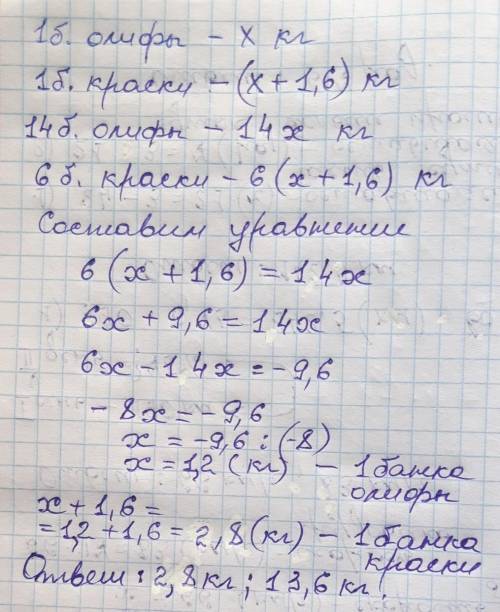 1б. олифы – x кг
1б. краски – (x + 1,6) кг
14 б. олифы – 14x кг
6 б. краски – 6 (x + 1,6) кг
Составим уравнение
6 (x + 1,6) = 14x
6x + 9,6 = 14x
6x – 14x = – 9,6
– 8x = – 9,6
x = –9,6 : (–8)
x = 1,2 (кг) – 1 банка
олифы
x + 1,6 =
= 1,2 + 1,6 = 2,8 (кг) – 1 банка
краски
Ответ: 2,8 кг; 13,6 кг.